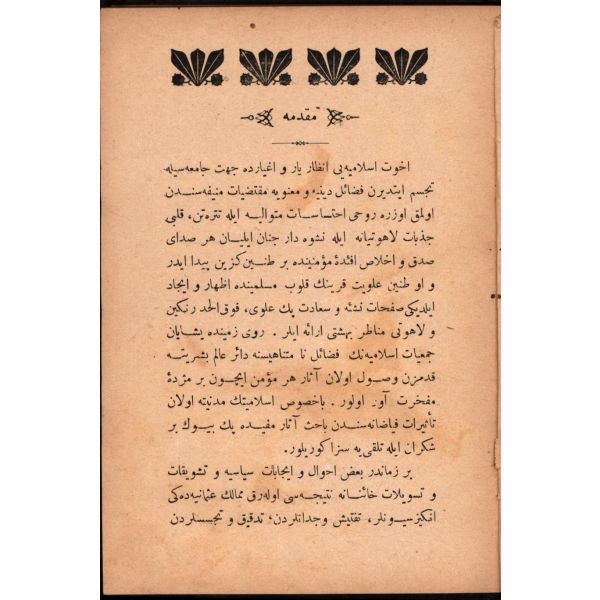 مقدمه
اخوت اسلاميه‌يی انظار يار و اغيارده جهت جامعه‌سيله
تجسم ايتديرن فضائل دينيه و معنويه مقتضيات منيفه‌سندن
اولمق اوزره روحی احتساسات متواليه ايله تتره‌تن، قلبی
جذبات لاهوتيانه ايله نشوه دار جنان ايليان هر صدای
صدق و اخلاص افئدهٔ مؤمنينده بر طنين‌كزين پيدا ايدر
و او طنين علويت قرينك قلوب مسلمينده اظهار و ايجاد
ايلديكی صفحات نشئه و سعادت پك علوی، فوق الحد رنكين
و لاهوتی مناظر بهشتی ارائه ايلر . روی زمينده يشايان
جمعيات اسلاميه‌نك فضائل نا متناهيسنه دائر عالم بشريته
قدمزن وصول اولان آثار هر مؤمن ايچون بر مژدهٔ
مفخرت آور اولور . باخصوص اسلاميتك مدنيته اولان
تأثيرات فياضانه‌سندن باحث آثار مفيده پك بيوك بر
شكران ايله تلقی‌يه سزا كوريلور.
بر زماندر بعض احوال و ايجابات سياسيه و تشويقات
و تسويلات خائنانه نتيجه‌سی اوله‌رق ممالك عثمانيه‌ده‌كی
انكيزسيونلر، تفتيش وجدانلردن، تدقيق و تجسسلردن